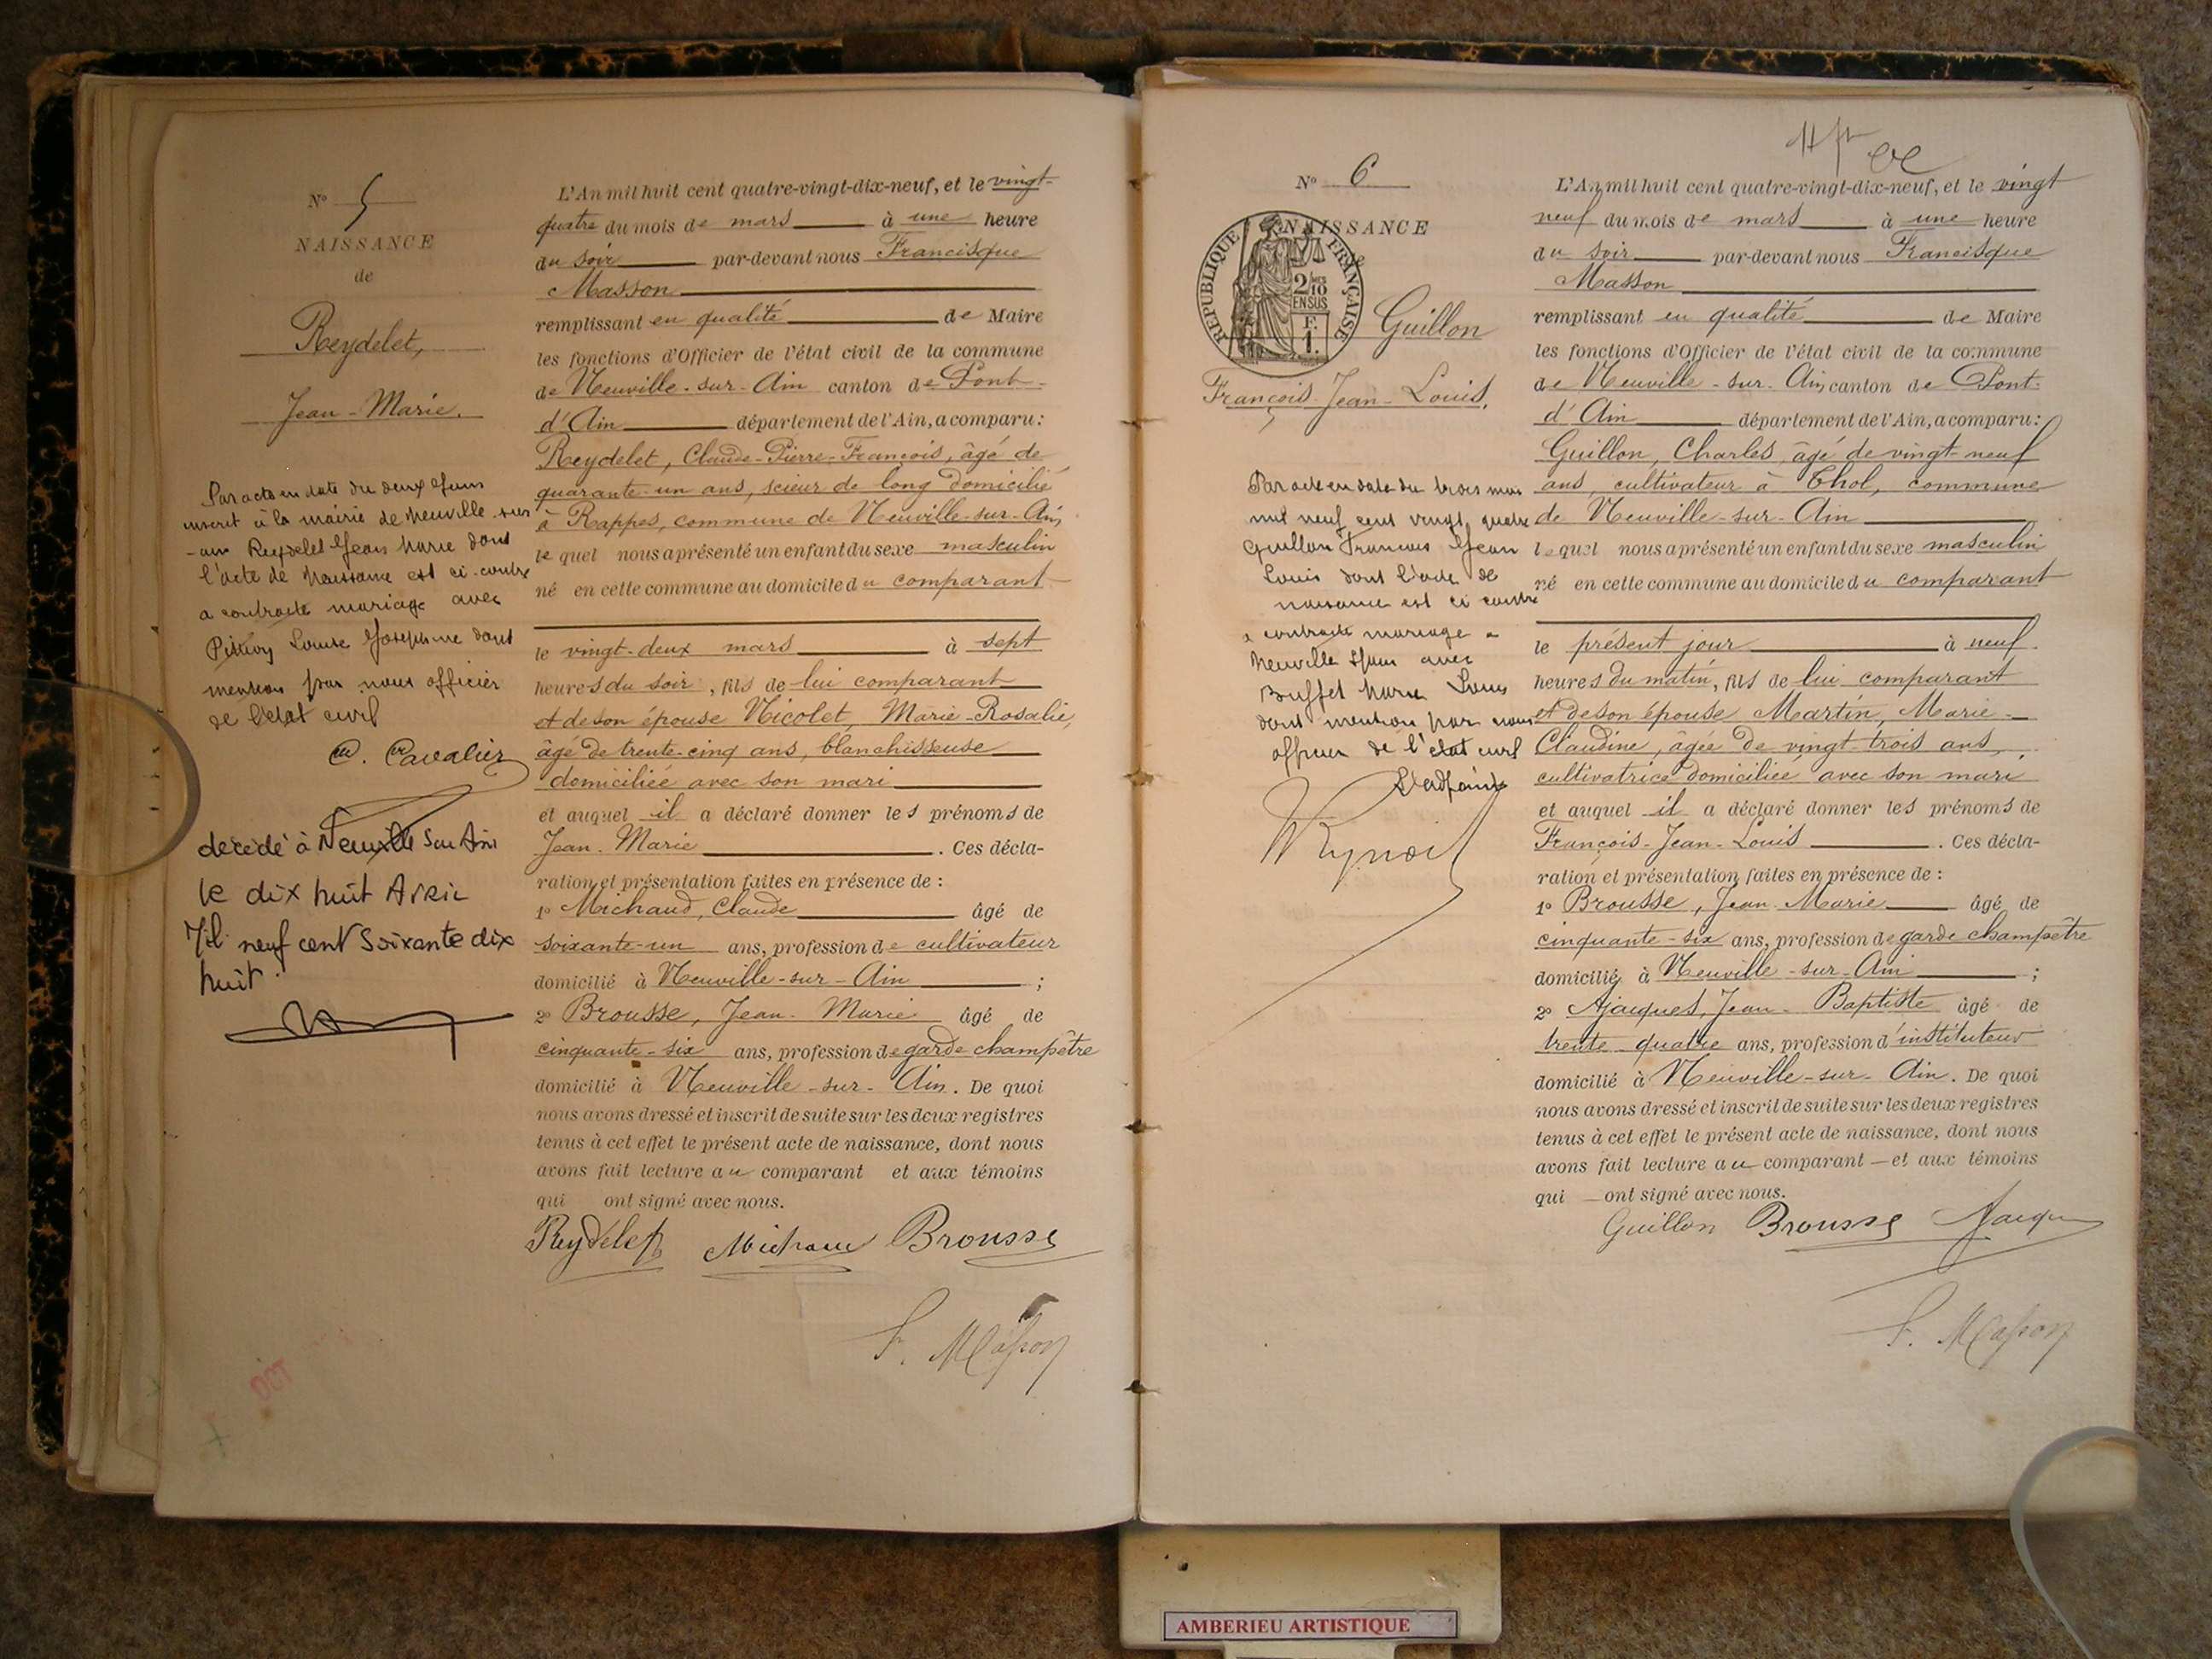 Nº 5
NAISSANCE
de
Reydelet,
Jean-Marie.
Par acte en date du deux Juin
inscrit à la mairie de Neuville-sur
-ain Reydelet Jean Marie dont
l'acte de Naissance est ci-contre
a contracté mariage avec
Louise Josephine dont
mention par nous officier
de l'etat civil
Cavalier
decédé à Neuville Sur Ain
le dix huit Avril
Mil neuf cent Soixante dix
huit.
L'An mil huit cent quatre-vingt-dix-neuf, et le vingt-
quatre du mois de mars à une heure
du soir par-devant nous Francisque
Masson
remplissant en qualité de Maire
les fonctions d'Officier de l'état civil de la commune
de Neuville-sur-Ain canton de Pont-
d'Ain département de l'Ain, a comparu:
Reydelet, Claude-Pierre-François, âgé de
quarante-un ans, scieur de long domicilié
à Rappes, commune de Neuville-sur-Ain,
lequel nous a présenté un enfant du sexe masculin
né en cette commune au domicile du comparant
le vingt-deux mars à sept
heures du soir, fils de lui comparant
et de son épouse Nicolet, Marie-Rosalie,
âgé de trente-cinq ans, blanchisseuse
domiciliée avec son mari
et auquel il a déclaré donner les prénoms de
Jean-Marie . Ces décla-
ration et présentation faites en présence de :
1º Michaud, Claude âgé de
soixante-un ans, profession de cultivateur
domicilié à Neuville-sur-Ain ;
2º Brousse, Jean-Marie âgé de
cinquante-six ans, profession de garde champêtre
domicilié à Neuville-sur-Ain. De quoi
nous avons dressé et inscrit de suite sur les deux registres
tenus à cet effet le présent acte de naissance, dont nous
avons fait lecture au comparant et aux témoins
qui ont signé avec nous.
Reydelet Michaud Brousse
F. Masson
OCT
Nº 6
NAISSANCE
de
REPUBLIQUE FRANÇAISE
2/10
EN SUS
F.
1.
Guillon
François-Jean-Louis.
Par acte en date du trois mai
mil neuf cent vingt quatre
Guillon Francois Jean
Louis dont l'acte de
naissance est ci contre
a contracté mariage a
Neuville s/ain avec
Buffet Marie Louise
dont mention par nous
officier de l'état civil
L'adjoint
L'An mil huit cent quatre-vingt-dix-neuf, et le vingt
neuf du mois de mars à une heure
du soir par-devant nous Francisque
Masson
remplissant en qualité de Maire
les fonctions d'Officier de l'état civil de la commune
de Neuville-sur-Ain canton de Pont-
d'Ain département de l'Ain, a comparu:
Guillon, Charles, âgé de vingt-neuf
ans, cultivateur à Thol, commune
de Neuville-sur-Ain
lequel nous a présenté un enfant du sexe masculin
né en cette commune au domicile du comparant
le présent jour à neuf
heures du matin, fils de lui comparant
et de son épouse Martin, Marie-
Claudine, âgée de vingt-trois ans,
cultivatrice domiciliée avec son mari
et auquel il a déclaré donner les prénoms de
François-Jean-Louis . Ces décla-
ration et présentation faites en présence de :
1º Brousse, Jean-Marie âgé de
cinquante-six ans, profession de garde champêtre
domicilié à Neuville-sur-Ain ;
2º Ajacques, Jean-Baptiste âgé de
trente-quatre ans, profession d'instituteur
domicilié à Neuville-sur-Ain. De quoi
nous avons dressé et inscrit de suite sur les deux registres
tenus à cet effet le présent acte de naissance, dont nous
avons fait lecture au comparant et aux témoins
qui ont signé avec nous.
Guillon Brousse
F. Masson
AMBERIEU ARTISTIQUE